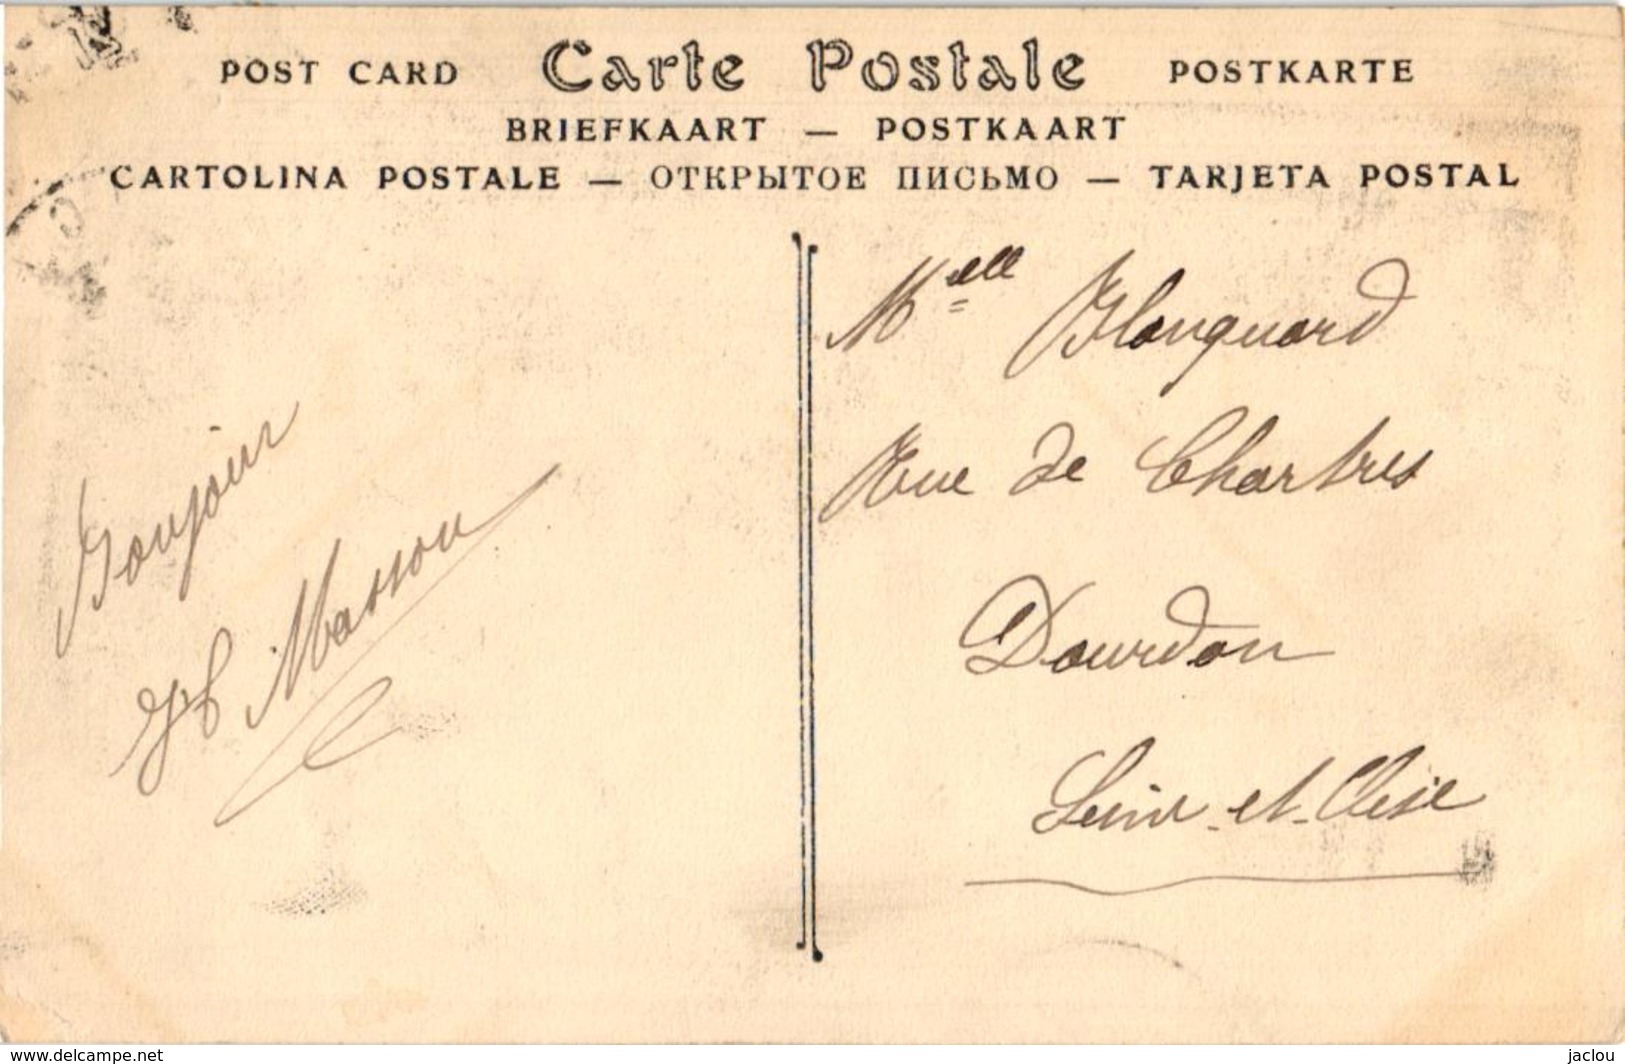 POST CARD Carte Postale POSTKARTE
BRIEFKAART — POSTKAART
CARTOLINA POSTALE — ОТКРЫТОЕ ПИСЬМО — TARJETA POSTAL
Melle Blanquard
Rue de Chartres
Dourdon
Seine-et-Oise
Bonjour
Masson
www.delcampe.net
jaclou